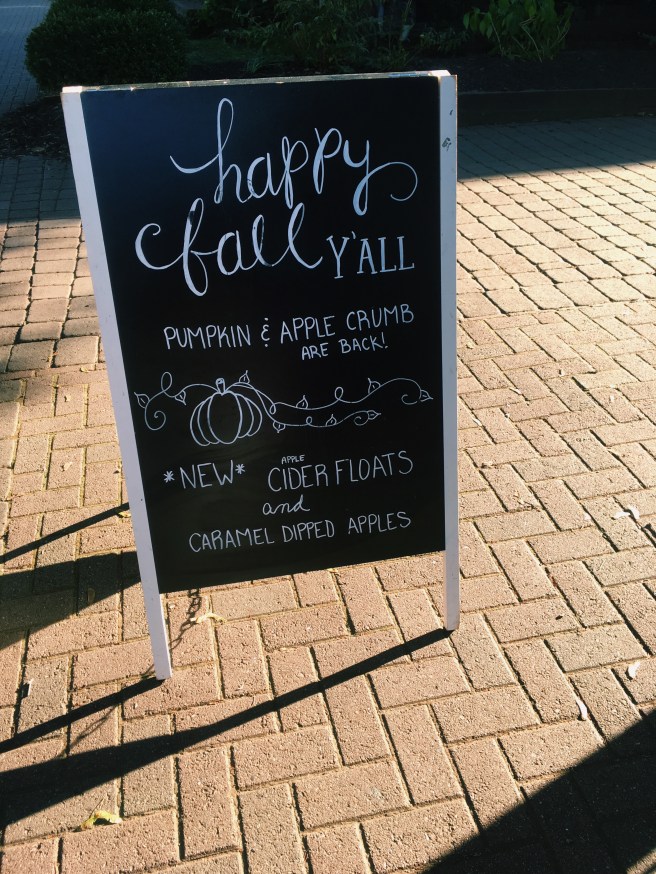 happy
fall Y'ALL
PUMPKIN & APPLE CRUMB
ARE BACK!
*NEW* APPLE CIDER FLOATS
and
CARAMEL DIPPED APPLES